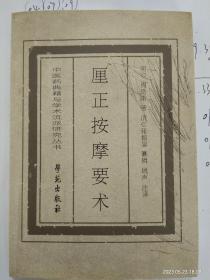 厘正按摩要术
中医药典籍与学术流派研究丛书
學苑出版社
2023.05.23 18:18